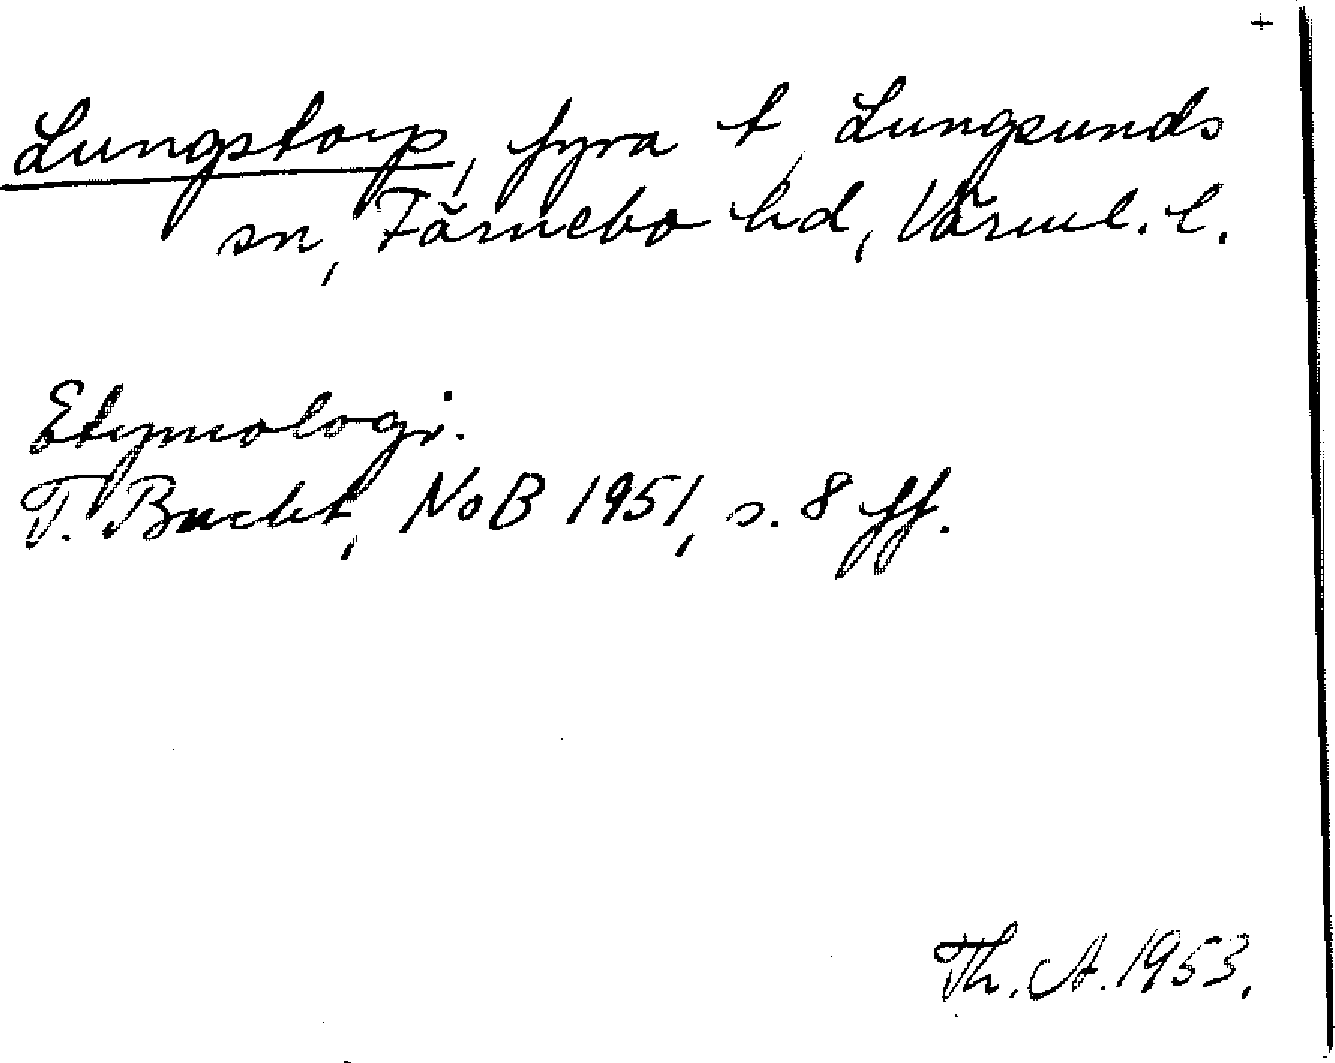 +
Lungstorp, fyra t, Lungsunds
sn, Färnebo hd, Värml. l.
Etymologi.
T. Bucht, NoB 1951, s. 8 ff.
Th. A. 1953.